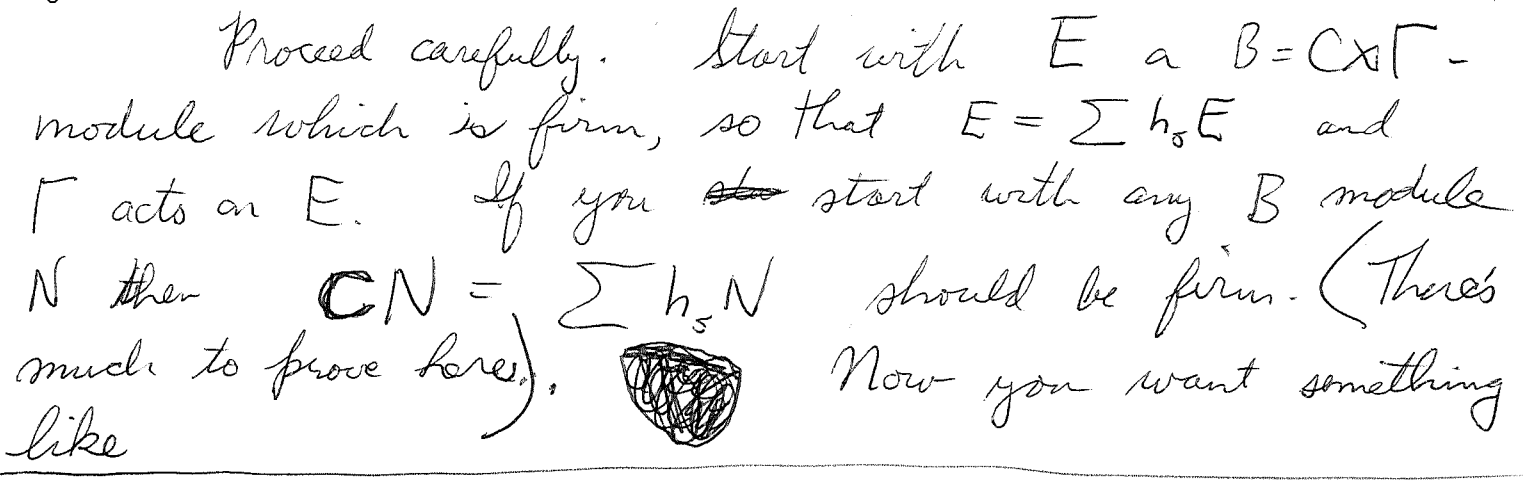 Proceed carefully. Start with E a B = C⋊Γ -
module which is firm, so that E = Σ hₛE and
Γ acts on E. If you start with any B module
N then CN = Σ hₛN should be firm. (There's
much to prove here.). Now you want something
like